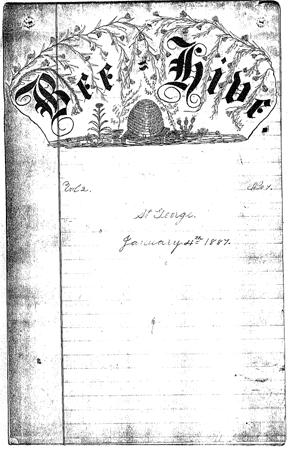 Bee-Hive
Vol 2. No 7.
St George.
January 4th 1887.